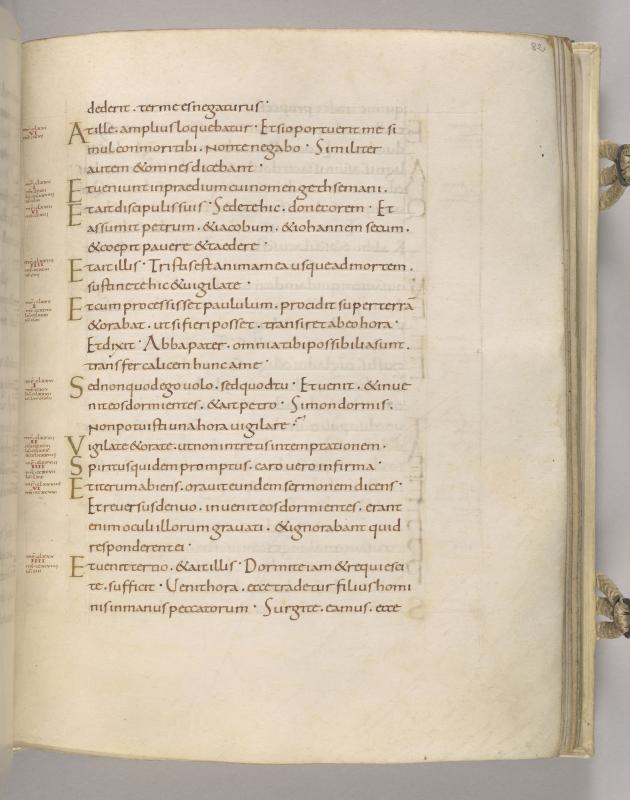 82
dederit. ter me es negaturus.
At ille. amplius loquebatur. Et si oportuerit me si
mul conmori tibi. Non te negabo. Similiter
autem & omnes dicebant.
Et veniunt in praedium cui nomen gethsemani.
Et ait discipulis suis. Sedete hic. donec orem. Et
assumit petrum. & iacobum. & iohannem secum.
& coepit pavere & taedere.
Et ait illis. Tristis est anima mea usque ad mortem.
sustinete hic & vigilate.
Et cum processisset paululum. procidit super terrā
& orabat. ut si fieri posset. transiret ab eo hora.
Et dixit. Abba pater. omnia tibi possibilia sunt.
transfer calicem hunc a me.
Sed non quod ego volo. sed quod tu. Et venit. & inve
nit eos dormientes. & ait petro. Simon dormis.
Non potuisti una hora vigilare.
Vigilate & orate. ut non intretis in temptationem.
Spiritus quidem promptus. caro vero infirma.
Et iterum abiens. oravit eundem sermonem dicens.
Et reversus denuo. invenit eos dormientes. erant
enim oculi illorum gravati. & ignorabant quid
responderent ei.
Et venit tertio. & ait illis. Dormite iam & requiesci
te. sufficit. Venit hora. ecce tradetur filius homi
nis in manus peccatorum. Surgite. eamus. ecce